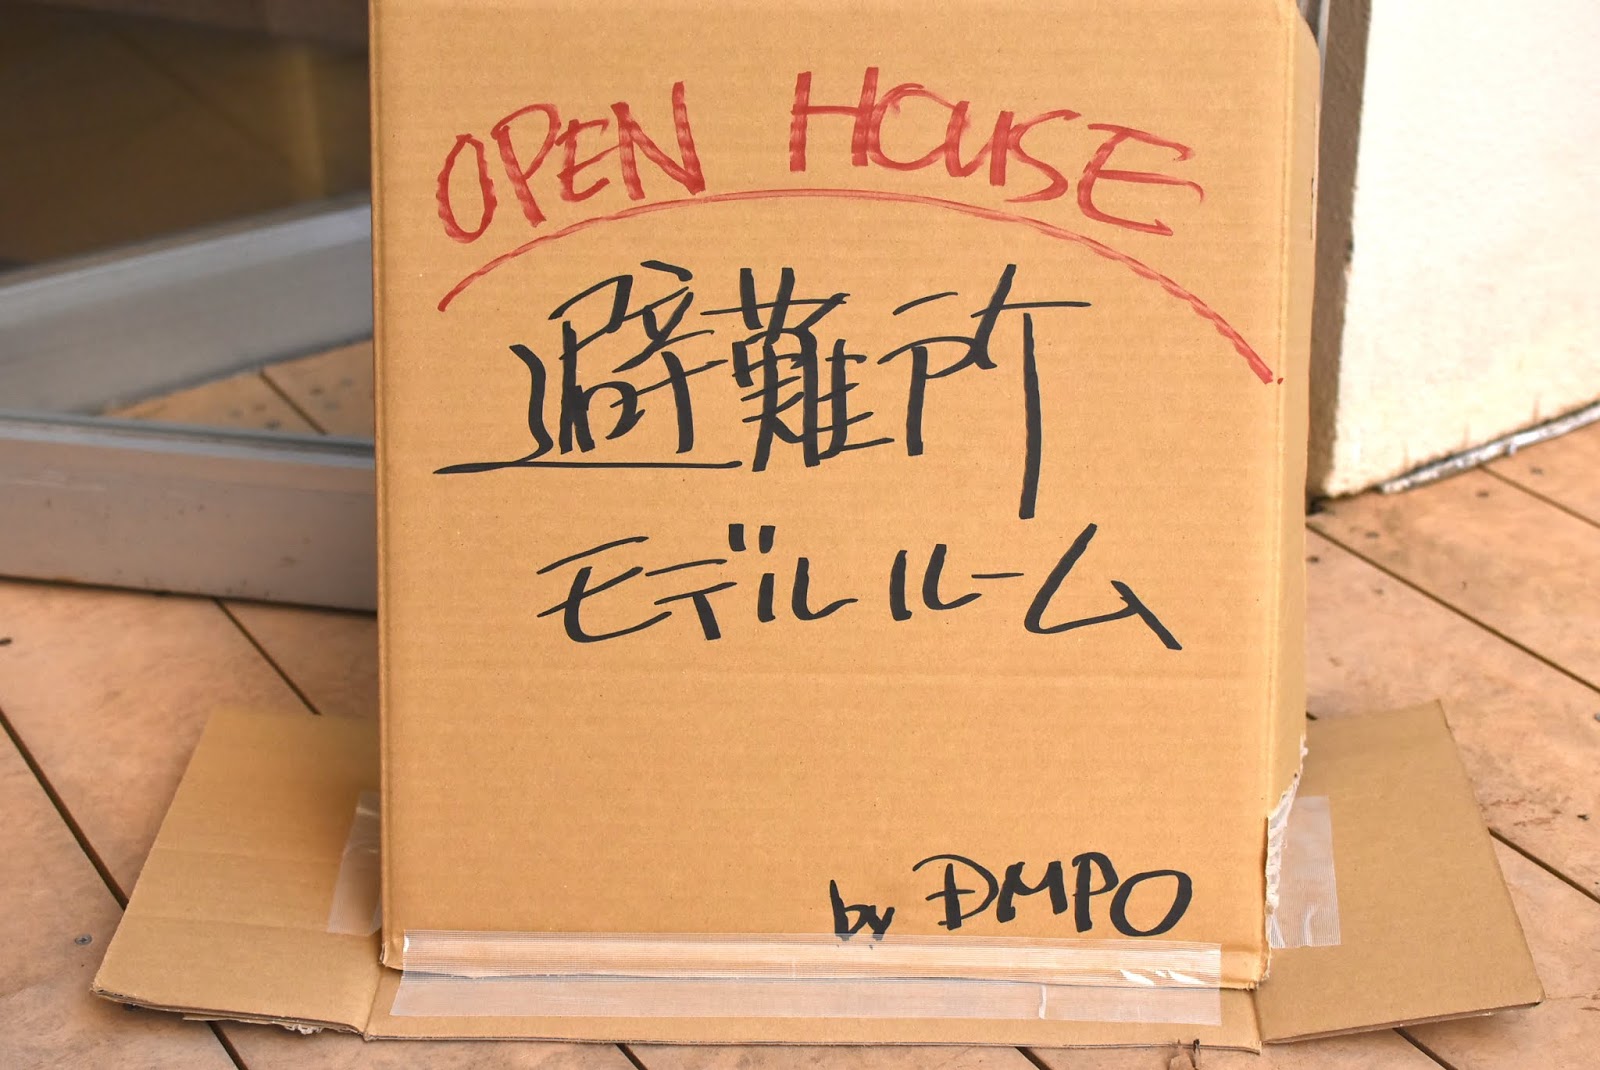 OPEN HOUSE
避難所
モデルルーム
by DMPO